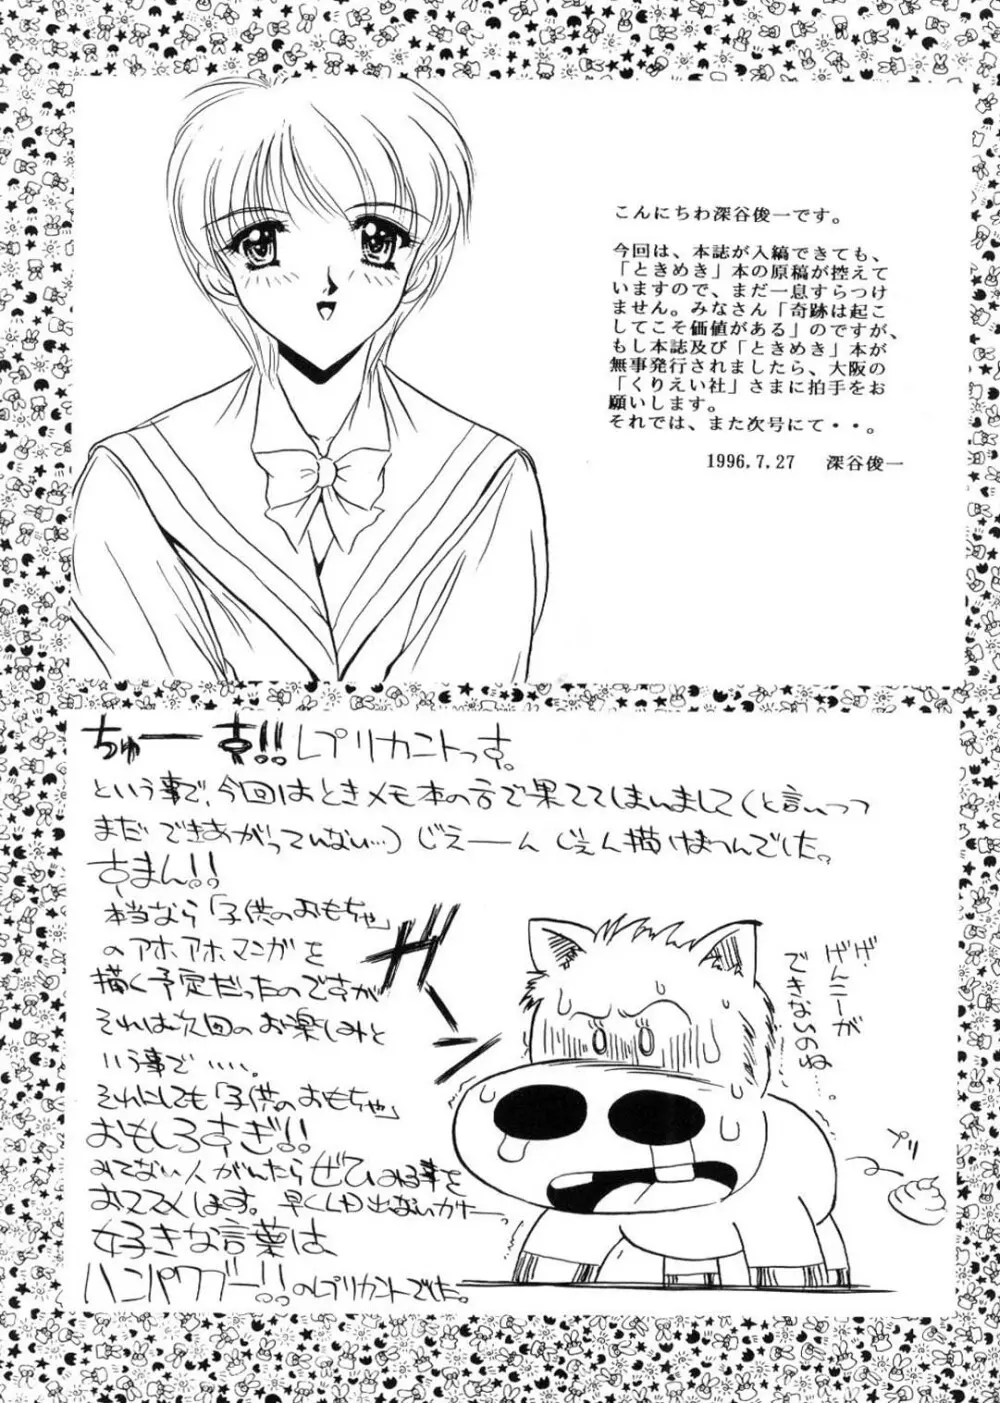 こんにちわ深谷俊一です。
今回は、本誌が入稿できても、
「ときめき」本の原稿が控えて
いますので、まだ一息すらつけ
ません。みなさん「奇跡は起こ
してこそ価値がある」のですが、
もし本誌及び「ときめき」本が
無事発行されましたら、大阪の
「くりえい社」さまに拍手をお
願いします。
それでは、また次号にて・・。
1996.7.27 深谷俊一
ちゅーす!!レプリカントっす。
という事で、今回はときメモ本の方で果ててしまいまして(と言いつつ
まだできあがっていない…)じえーんじえん描けませんでした。
すまん!!
本当なら「子供のおもちゃ」
のアホアホマンガを
描く予定だったのですが
それは次回のお楽しみと
いう事で・・・・・。
それにしても「子供のおもちゃ」
おもしろすぎ!!
みてない人がいたらぜひみる事を
おススメします。早くLD出ないカナー。
好きな言葉は、
ハンパワブー!!のレプリカントでした。
ガーン
げ、
げんこーが
できないのね…
プリ